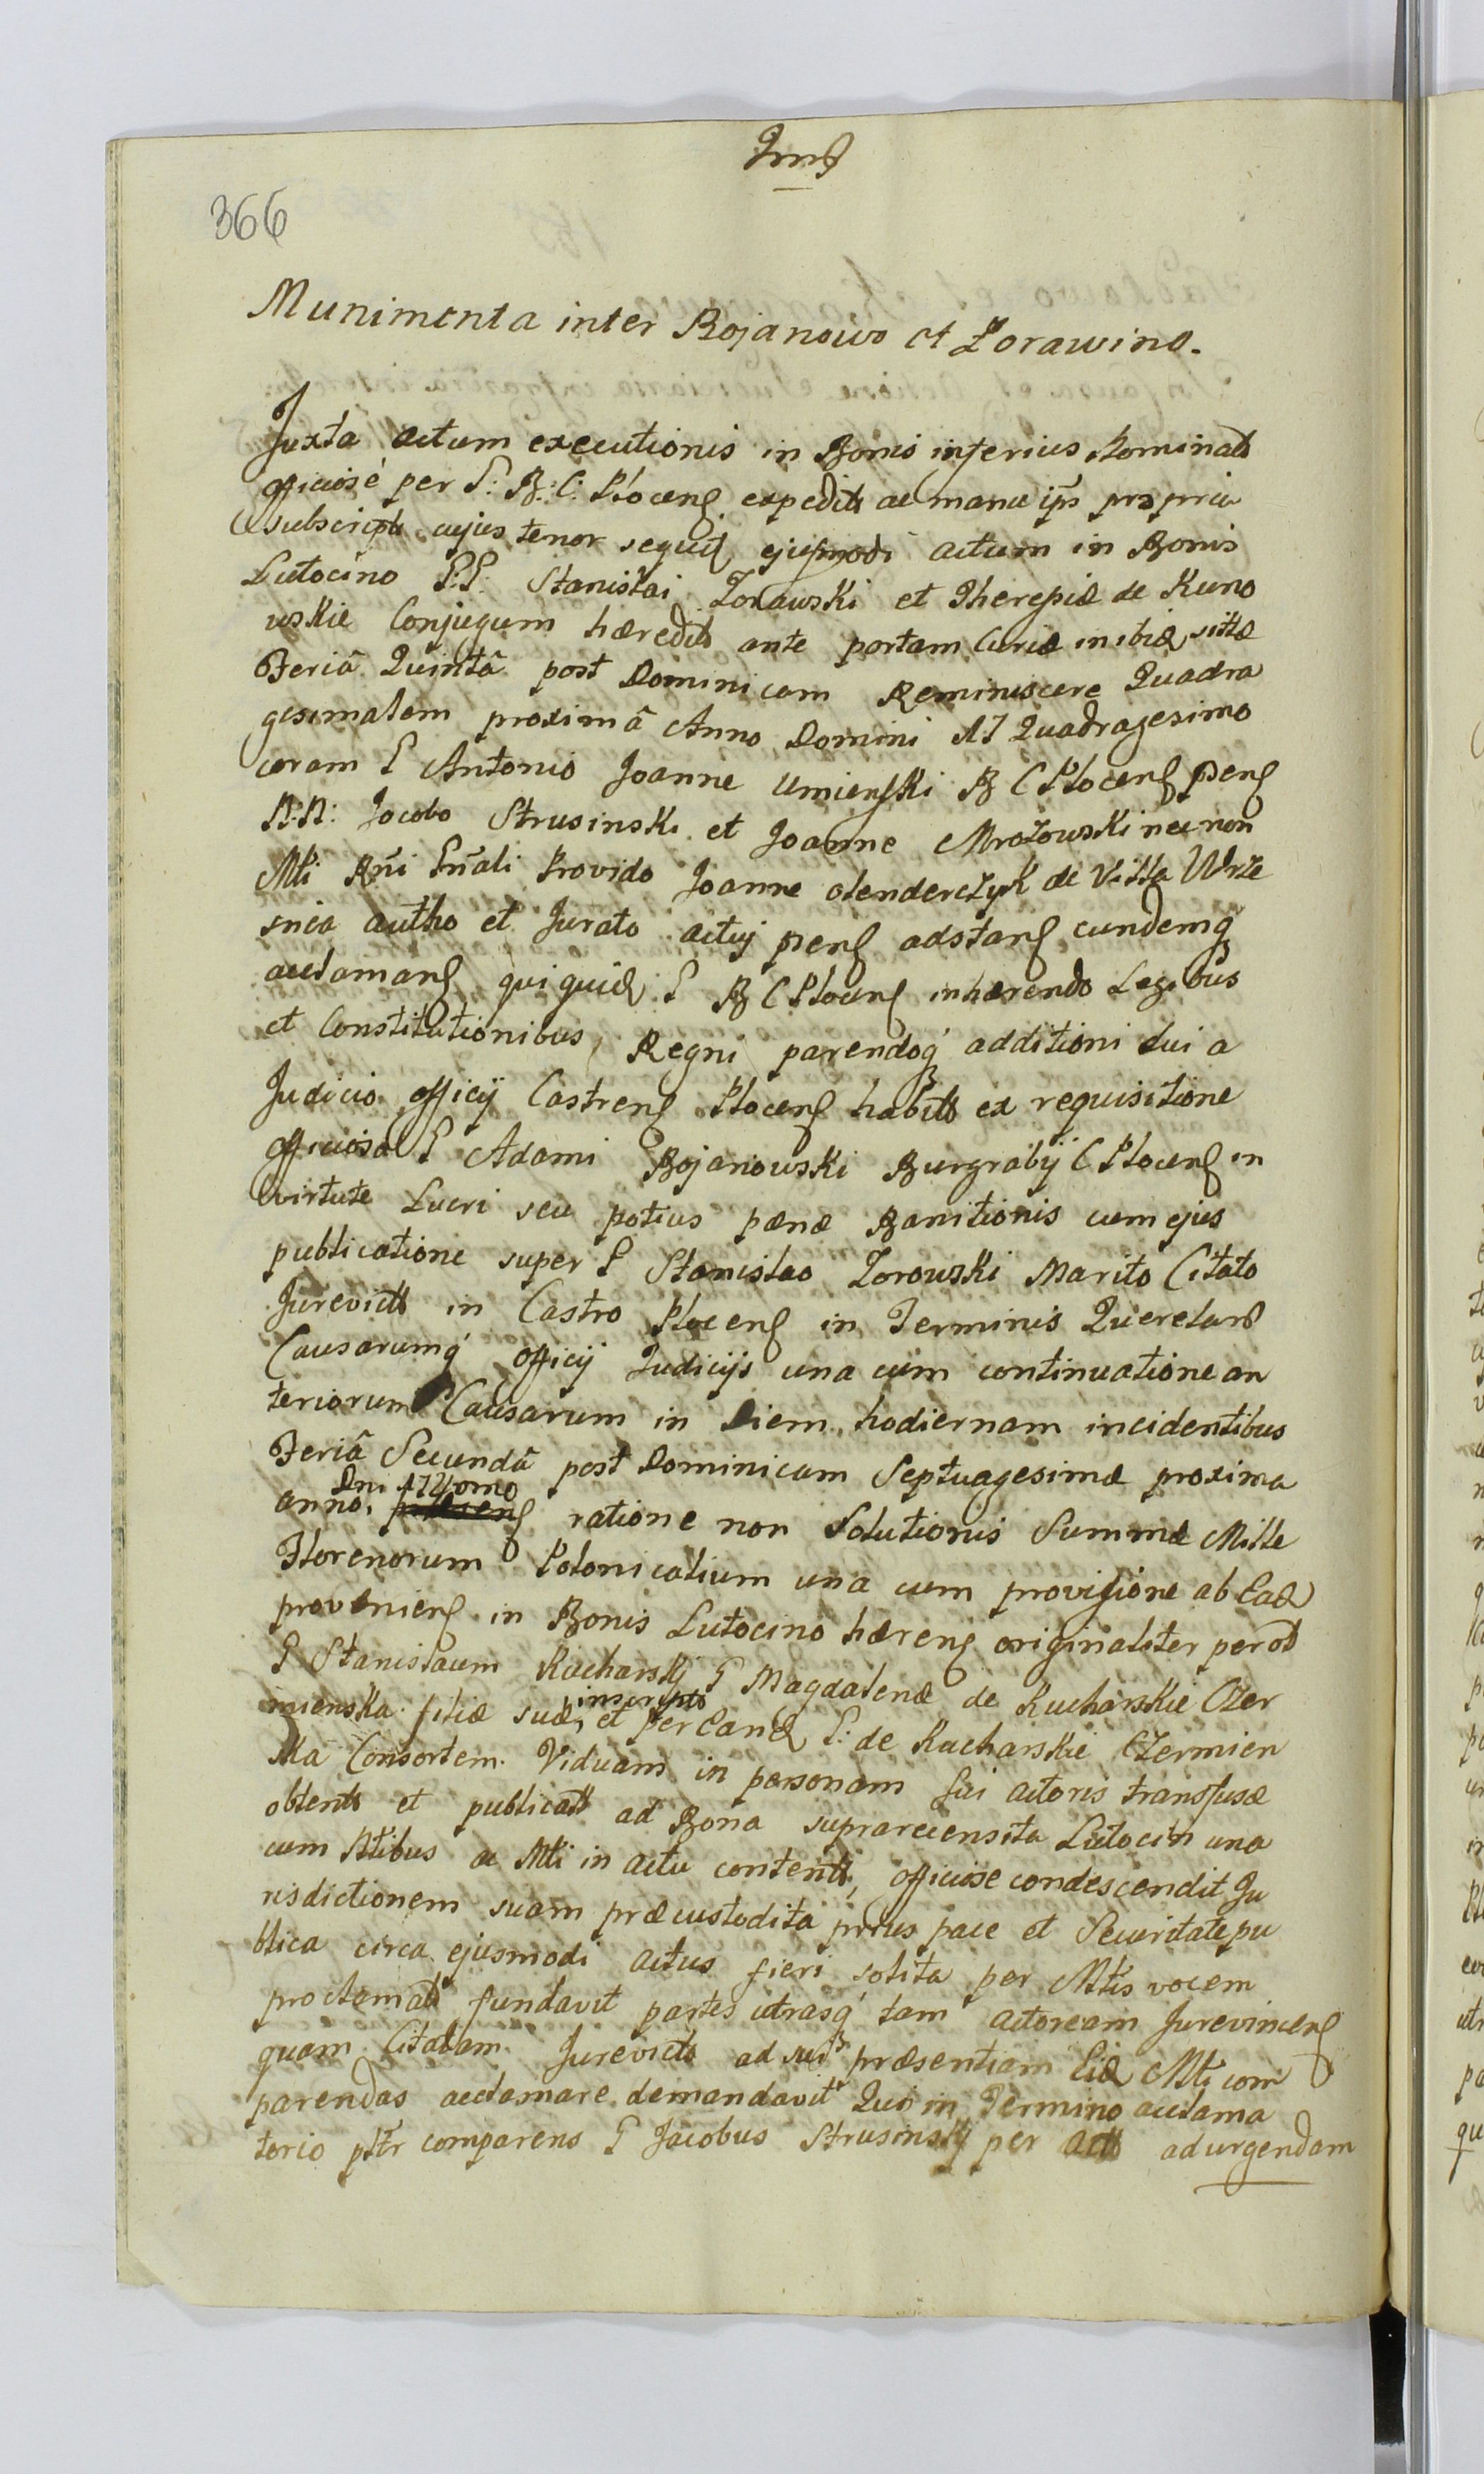 366
Munimenta inter Bojanowo et Zorawino.
Juxta actum executionis in Bonis inferius Nominats
officiose per G: B: C: Plocens expedits ac manu ips propria
subscripts cujus tenor sequit ejusmodi actum in Bonis
Lutocino G:G: Stanislai Zorawski et Theresiæ de Kuno
wskie Conjugum hæredits ante portam Curiæ inibiq sittæ
Feriâ Quintâ post Dominicam Reminiscere Quadra
gesimalem proximâ Anno Domini 17 Quadragesimo
coram G Antonio Joanne Umienski B C Plocens pens
N:N: Jacobo Strusinski et Joanne Mrozowski nec non
Mli Rñi Gnãli Provido Joanne olenderczyk de Villa Wrze
snia autho et Jurato actuj pens adstans eundemq
acclamans qui quid G B C Plocens inhærendo Legibus
et Constitutionibus Regni parendoq additioni sui a
Judicio officij Castrens Plocens habits ex requisitione
officiosa G Adami Bojanowski Burgrabij C Plocens in
virtute Lucri seu potius pænæ Banitionis cum ejus
publicatione super G Stanislao Zorowski Marito Citato
Jurevicts in Castro Plocens in Terminis Querelars
Causarumq officij Judicijs una cum continuatione an
teriorum Causarum in Diem hodiernam incidentibus
Feriâ Secundâ post Dominicam Septuagesimæ proxima
Dni 1740mo
anno ratione non Solutionis Summæ Mille
Florenorum Polonicalium una cum provisione ab Ead
proveniens in Bonis Lutocino hærens originaliter per ol
G Stanislaum Kucharskj G Magdalenæ de Kucharskie Czer
inscripts
mienska filiæ suæ, et per Eand G: de Kucharskie Czermien
ska Consortem Viduam in personam sui actoris transfusæ
obtents et publicats ad Bona suprarecensita Lutocin una
cum Ntibus ac Mli in actu contentis, officiose condescendit Ju
risdictionem suam præcustodita prius pace et Securitate pu
blica circa ejusmodi actus fieri solita per Mlis vocem
proclamats fundavit partes utrasq tam actoream Jurevincens
quam Citatam Jurevicts ad sui præsentiam Eid Mli com
parendas acclamare demandavit Quo in Termino acclama
torio pltr comparens G Jacobus Strusinskj per acts ad urgendam